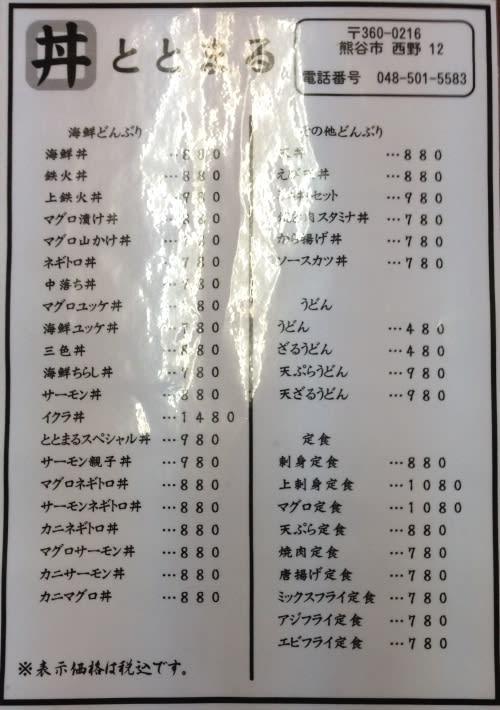 丼 ととまる
〒360-0216
熊谷市 西野 12
電話番号 048-501-5583
海鮮どんぶり
海鮮丼 …880
鉄火丼 …880
上鉄火丼 …980
マグロ漬け丼 …880
マグロ山かけ丼 …
ネギトロ丼 …780
中落ち丼
マグロユッケ丼 880
海鮮ユッケ丼
三色丼 …880
海鮮ちらし丼 …780
サーモン丼 …880
イクラ丼 …1480
ととまるスペシャル丼 …980
サーモン親子丼 …980
マグロネギトロ丼 …880
サーモンネギトロ丼 …880
カニネギトロ丼 …880
マグロサーモン丼 …880
カニサーモン丼 …880
カニマグロ丼 …880
その他どんぶり
天丼 …880
丼 …880
セット …980
スタミナ丼 …780
から揚げ丼 …780
ソースカツ丼 …780
うどん
うどん …480
ざるうどん …480
天ぷらうどん …980
天ざるうどん …980
定食
刺身定食 …880
上刺身定食 …1080
マグロ定食 …1080
天ぷら定食 …880
焼肉定食 …780
唐揚げ定食 …780
ミックスフライ定食 …780
アジフライ定食 …780
エビフライ定食 …780
※表示価格は税込です。